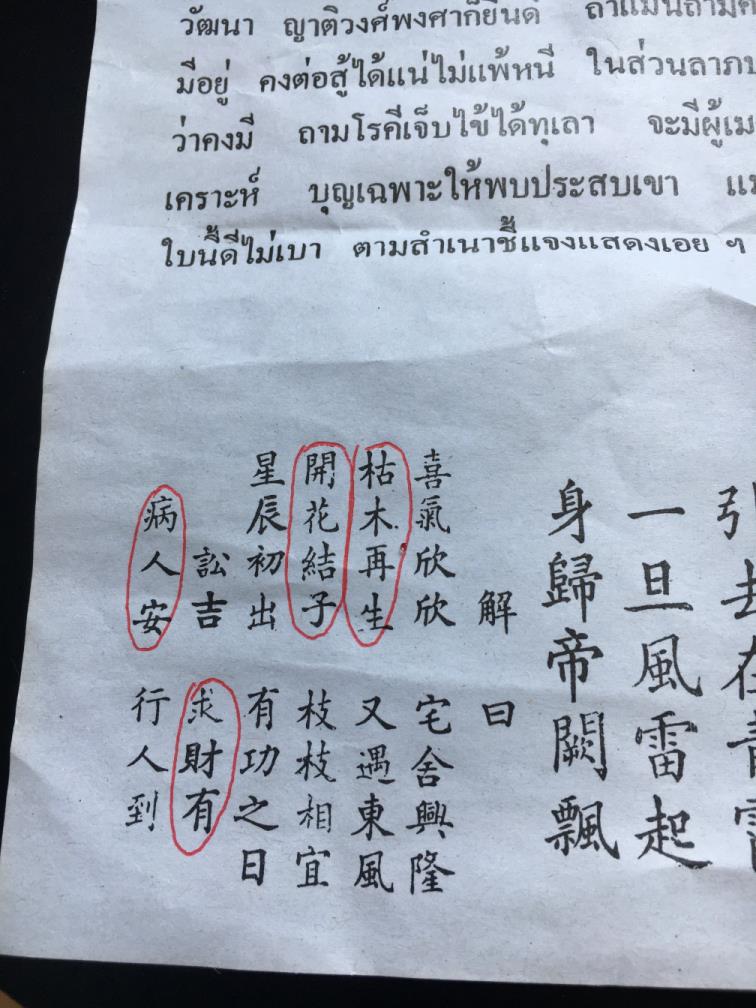 วัฒนา ญาติวงศ์พงศาก็ยินดี ถ้าแม้นถามค
มีอยู่ คงต่อสู้ได้แน่ไม่แพ้หนี ในส่วนลาภ
ว่าคงมี ถามโรคีเจ็บไข้ได้ทุเลา จะมีผู้เม
เคราะห์ บุญเฉพาะให้พบประสบเขา
ใบนี้ดีไม่เบา ตามสำเนาชี้แจงแสดงเอย ฯ
引去在青
一旦風雷起
身歸帝闕飄
解曰
喜氣欣欣 宅舍興隆
枯木再生 又遇東風
開花結子 枝枝相宜
星辰初出 有功之日
訟吉 求財有
病人安 行人到